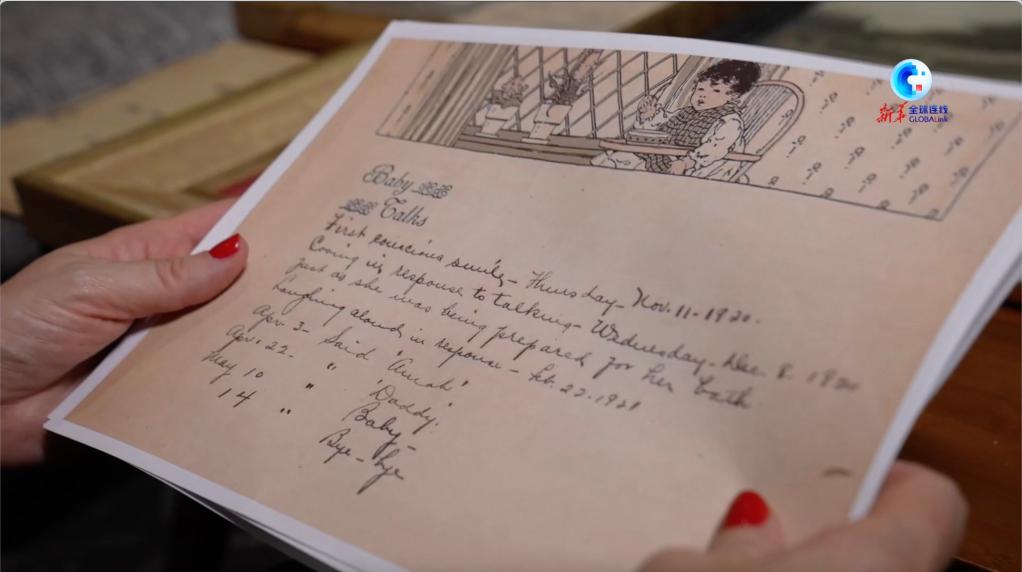 新华 全球连线
GLOBALink
Baby
Talks
First concious smile - Thursday - Nov. 11 - 1920.
Cooing in response to talking - Wednesday - Dec. 8. 1920
just as she was being prepared for her bath
Laughing aloud, in response - Feb. 22. 1921
Apr. 3 - Said "Amah"
Apr. 22 - " "Daddy."
May 10 " Baby -
14 " Bye - bye